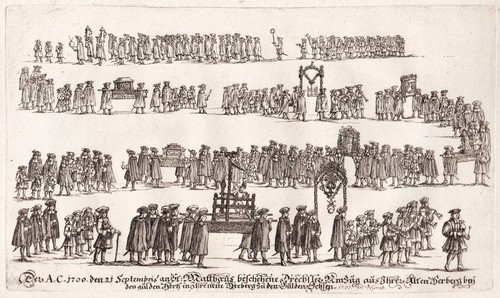 Der A.C. 1700. den 21 Septembris an St. Matthæus beschehene Drechsler Umzüg aus Ihrer Alten Herberg bey
den gülden Hertz in ihre neue Herberg zu den Gülden Ochsen.